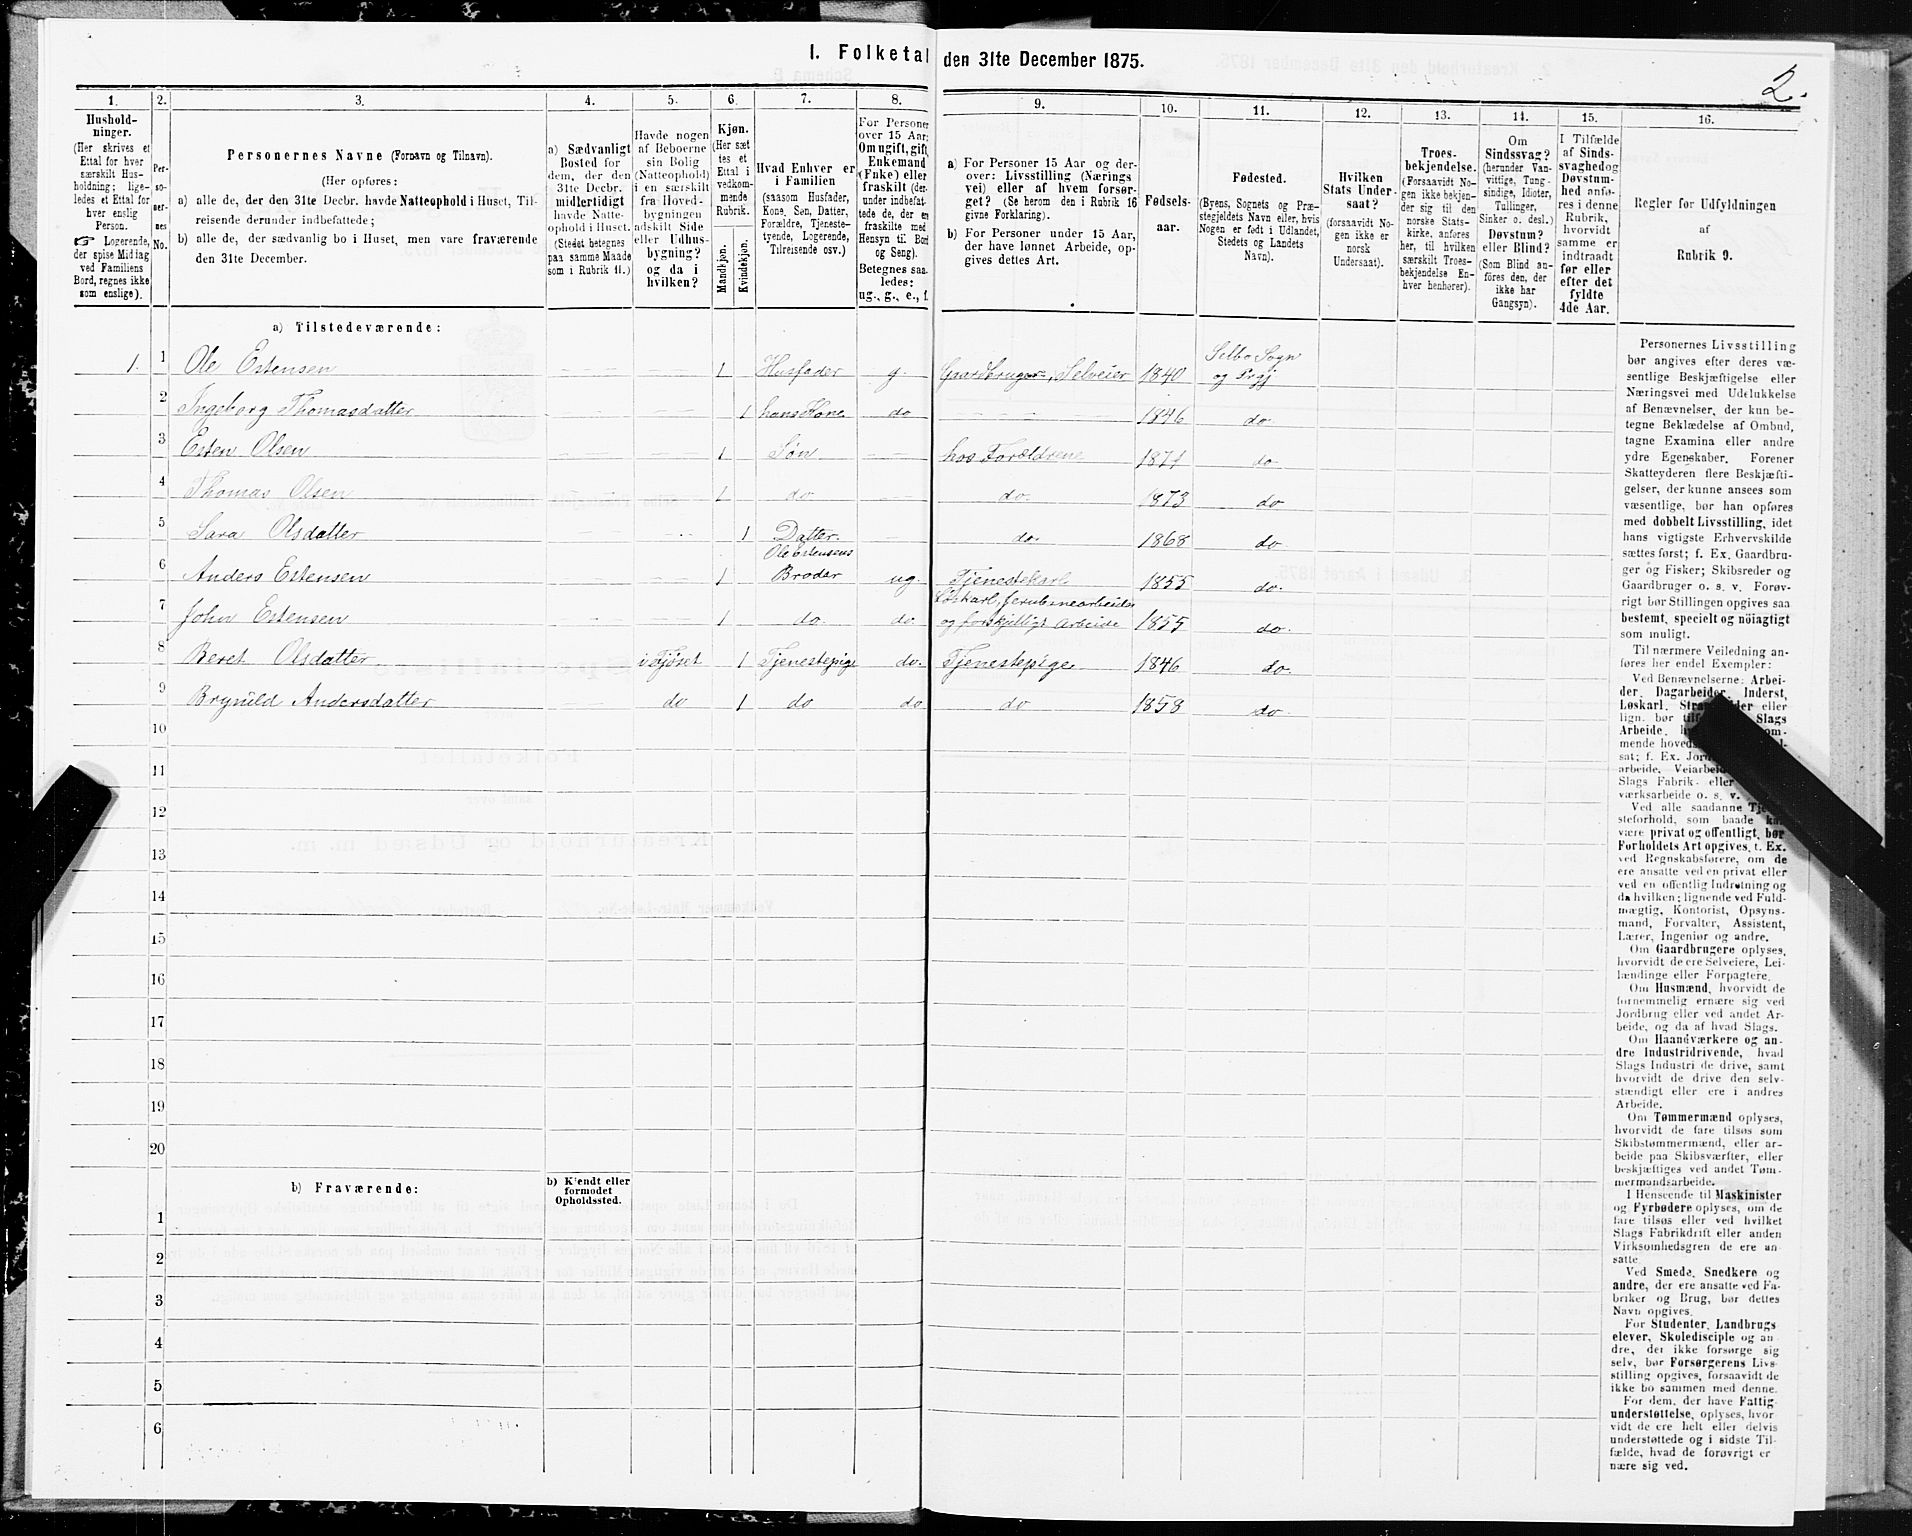 I. Folketal den 31te December 1875.
2.
1. 2. 3. 4. 5. 6. 7. 8. 9. 10. 11. 12. 13. 14. 15. 16.
Hushold-
ninger.
(Her skrives et
Ettal for hver
særskilt Hus-
holdning; lige-
ledes et Ettal for
hver enslig
Person.
☞ Logerende,
der spise Middag
ved Familiens
Bord, regnes ikke
som enslige).
Per-
so-
ner-
nes
No.
Personernes Navne (Fornavn og Tilnavn).
(Her opføres:
a) alle de, der den 31te Decbr. havde Natteophold i Huset, Til-
reisende derunder indbefattede;
b) alle de, der sædvanlig bo i Huset, men vare fraværende
den 31te December.
a) Sædvanligt
Bosted for
dem, der den
31te Decbr.
midlertidigt
havde Natte-
ophold i Huset.
(Stedet betegnes
paa samme Maade
som i Rubrik 11.)
Havde nogen
af Beboerne
sin Bolig
(Natteophold)
i en særskilt
fra Hoved-
bygningen
adskilt Side
eller Udhus-
bygning?
og da i
hvilken?
Kjøn.
(Her sæt
tes et
Ettal i
vedkom-
mende
Rubrik.
Mandkjøn.
Kvindekjøn.
Hvad Enhver er
i Familien
(saasom Husfader,
Kone, Søn, Datter,
Forældre, Tjeneste-
tyende, Logerende,
Tilreisende osv.)
For Personer
over 15 Aar:
Om ugift, gift,
Enkemand
(Enke) eller
fraskilt (der-
under indbefat-
tede de, der er
fraskilte med
Hensyn til Bord
og Seng).
Betegnes saa-
ledes:
ug., g., e., f.
a) For Personer 15 Aar og der-
over: Livsstilling (Nærings-
vei) eller af hvem forsør-
get? (Se herom den i Rubrik 16
givne Forklaring).
b) For Personer under 15 Aar,
der have lønnet Arbeide, op-
gives dettes Art.
Fødsels-
aar.
Fødested.
(Byens, Sognets og Præ-
stegjeldets Navn eller, hvis
Nogen er født i Udlandet,
Stedets og Landets
Navn).
Hvilken
Stats Under-
saat?
(forsaavidt No-
gen ikke er
norsk
Undersaat).
Troes-
bekjendelse.
(Forsaavidt No-
gen ikke bekjen-
der sig til den
norske Stats-
kirke, anføres
her, til hvilken
særskilt Troes-
bekjendelse En-
hver henhører).
Om
Sindssvag?
(herunder Van-
vittige, Tung-
sindige, Idioter,
Tullinger,
Sinker o. desl.)
Døvstum?
eller Blind?
(Som Blind an-
føres den, der
ikke har
Gangsyn).
I Tilfælde
af Sinds-
svaghed og
Døvstum-
hed anfø-
res i denne
Rubrik,
hvorvidt
samme er
indtraadt
før eller
efter det
fyldte
4de Aar.
Regler for Udfyldningen
af
Rubrik 9.
a) Tilstedeværende:
1. 1 Ole Estensen 1 Husfader g. Gaardbruger, Selveier 1840 Selbo Sogn
og Prgj
2 Ingeborg Thomasdatter 1 hans Kone do 1846 do.
3 Esten Olsen 1 Søn hos Forældrene 1871 do
4 Thomas Olsen 1 do do. 1873 do
5 Sara Olsdatter 1 Datter do. 1868 do
6 Anders Estensen 1 Ole Estensens
Broder ug. Tjenestekarl 1855 do.
7 John Estensen 1 do. do. Løskarl, Jernbanearbeide
og forskjelligt Arbeide 1855 do.
8 Beret Olsdatter i Fjøset 1 Tjenestepige do. Tjenestepige 1846 do.
9 Brynild Andersdatter do 1 do do. do 1858 do
10
11
12
13
14
15
16
17
18
19
20
b) Fraværende:
b) Kjendt eller
formodet
Opholdssted.
1
2
3
4
5
6
Personernes Livsstilling
bør angives efter deres væ-
sentlige Beskjæftigelse eller
Næringsvei med Udelukkelse
af Benævnelser, der kun be-
tegne Beklædelse af Ombud,
tagne Examina eller andre
ydre Egenskaber. Forener
Skatteyderen flere Beskjæfti-
gelser, der kunne ansees som
væsentlige, bør han opføres
med dobbelt Livsstilling, idet
hans vigtigste Erhvervskilde
sættes først; f. Ex. Gaardbru-
ger og Fisker; Skibsreder og
Gaardbruger o. s. v. Forøv-
rigt bør Stillingen opgives saa
bestemt, specielt og nøiagtigt
som muligt.
Til nærmere Veiledning an-
føres her endel Exempler:
Ved Benævnelserne: Arbei-
der, Dagarbeider, Inderst,
Løskarl, eller
lign. bør Slags
Arbeide,
mende
sat; f. Ex.
arbeide,
Slags Fabrik- eller
værksarbeide o. s. v.
Ved alle saadanne
steforhold, som baade
være privat og offentligt, bør
Forholdets Art opgives, t. Ex.
ved Regnskabsførere, om de
ere ansatte ved en privat eller
ved en offentlig Indretning og
da hvilken; lignende ved Fuld-
mægtig, Kontorist, Opsyns-
mand, Forvalter, Assistent,
Lærer, Ingeniør og andre.
Om Gaardbrugere oplyses,
hvorvidt de ere Selveiere, Lei-
lændinge eller Forpagtere.
Om Husmænd, hvorvidt de
fornemmelig ernære sig ved
Jordbrug eller ved andet Ar-
beide, og da af hvad Slags.
Om Haandværkere og an-
dre Industridrivende, hvad
Slags Industri de drive, samt
hvorvidt de drive den selv-
stændigt eller ere i andres
Arbeide.
Om Tømmermænd oplyses,
hvorvidt de fare tilsøs som
Skibstømmermænd, eller ar-
beide paa Skibsværfter, eller
beskjæftiges ved andet Tøm-
mermandsarbeide.
I Henseende til Maskinister
og Fyrbødere oplyses, om de
fare tilsøs eller ved hvilket
Slags Fabrikdrift eller anden
Virksomhedsgren de ere an-
satte.
Ved Smede, Snedkere og
andre, der ere ansatte ved Fa-
briker og Brug, bør dettes
Navn opgives.
For Studenter, Landbrugs-
elever, Skoledisciple og an-
dre, der ikke forsørge sig
selv, bør Forsørgerens Livs-
stilling opgives, forsaavidt de
ikke bo sammen med denne.
For dem, der have Fattig-
understøttelse, oplyses, hvor-
vidt de ere helt eller delvis
understøttede og i sidste Til-
fælde, hvad de forøvrigt er-
nære sig ved.